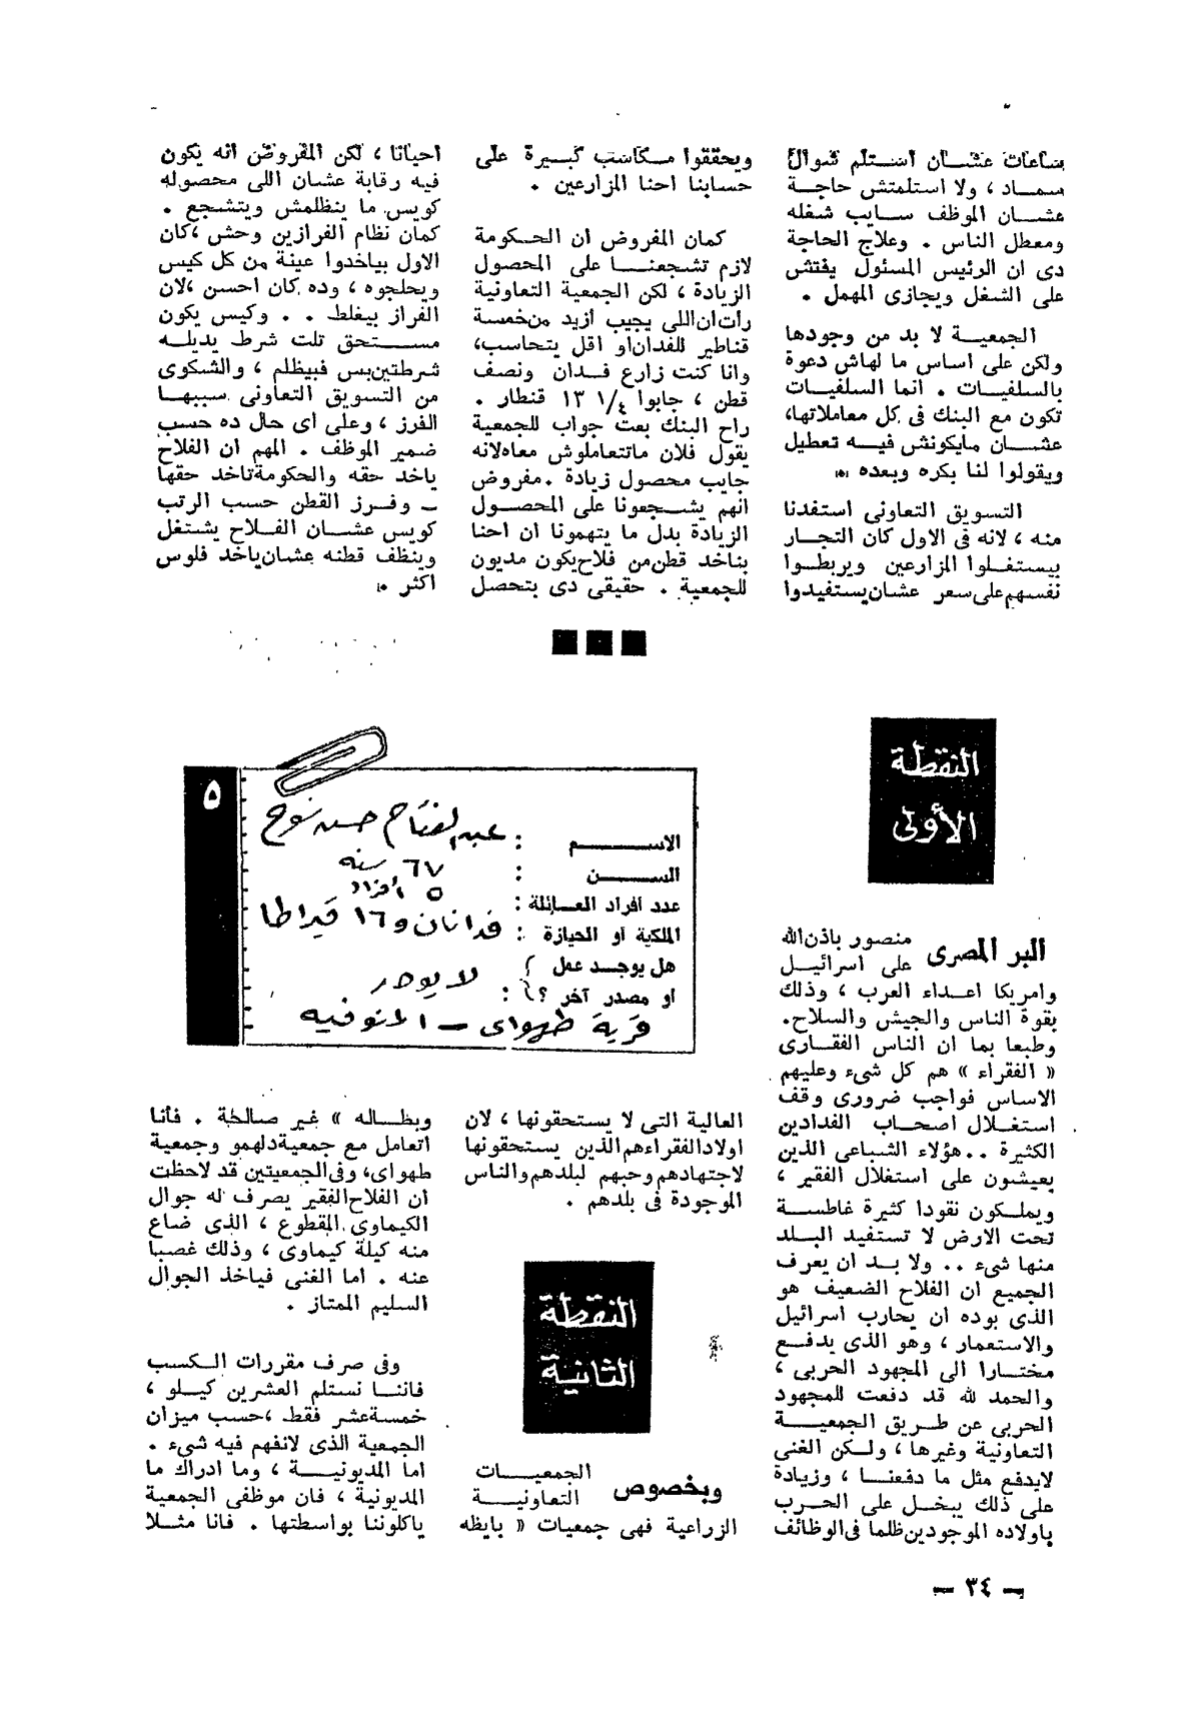 ساعات عشـــان استـــلم شوال
سمـــاد ، ولا استلمتش حاجـــة
عشـــان الموظف ســـايب شغله
ومعطل الناس . وعلاج الحاجة
دى ان الرئيس المسئول يفتش
على الشغل ويجازى المهمل .
الجمعيـــة لا بد من وجودها
ولكن على اساس ما لهاش دعوة
بالسلفيـــات . انما السلفيـــات
تكون مع البنك فى كل معاملاتها،
عشـــان مايكونش فيـــه تعطيل
ويقولوا لنا بكره وبعده .
التسويق التعاونى استفدنا
منه ، لانه فى الاول كان التجـــار
بيستغـــلوا المزارعين ويربطـــوا
نفسهم على سعر عشان يستفيدوا
ويحققوا مـــكاسب كبـــيرة على
حسابنا احنا المزارعين .
كمان المفروض ان الحـــكومة
لازم تشـــجعنـــا على المحصول
الزيادة ، لكن الجمعية التعاونية
رأت ان اللى يجيب ازيد من خمســـة
قناطير للفدان او اقل يتحاسب،
وانا كنت زارع فـــدان ونصف
قطن ، جابوا ١/٤ ١٣ قنطار .
راح البنك بعت جواب للجمعية
يقول فلان ماتتعاملوش معاه لانه
جايب محصول زيادة . مفروض
انهم يشـــجعونا على المحصـــول
الزيادة بدل ما يتهمونا ان احنا
بناخد قطن من فلاح يكون مديون
للجمعية . حقيقى دى بتحصل
احيانا ، لكن المفروض انه يكون
فيه رقابة عشان اللى محصوله
كويس ما ينظلمش ويتشجع .
كمان نظام الفرازين وحش ، كان
الاول بياخدوا عينة من كل كيس
ويحلجوه ، وده كان احسن ، لان
الفراز بيغلط . . وكيس يكون
مستـــحق تلت شرط يديلـــه
شرطتين بس فبيظلم ، والشكوى
من التسويق التعاونى سببهـــا
الفرز ، وعلى اى حال ده حسب
ضمير الموظف . المهم ان الفلاح
ياخد حقه والحكومة تاخد حقها
ــ وفـــرز القطن حسب الرتب
كويس عشـــان الفـــلاح يشتغل
وينظف قطنه عشان ياخد فلوس
اكثر .
النقطة
الأولى
٥
الاســـــم : عبد الفتاح حسن نوح
الســـــن : ٦٧ سنه
عدد افراد العـــائلة : ٥ أفراد
الملكية او الحيازة : فدانان و١٦ قيراطا
هل يوجـــد عمل
او مصدر آخر ؟ : لا يوجد
قرية طهواى ــ المنوفيه
البر المصرى منصور باذن الله
على اسرائيـــل
وامريكا اعـــداء العرب ، وذلك
بقوة الناس والجيش والسلاح.
وطبعا بما ان الناس الفقـــارى
« الفقراء » هم كل شىء وعليهم
الاساس فواجب ضرورى وقف
استغـــلال اصحـــاب الفدادين
الكثيرة . . هؤلاء الشباعى الذين
يعيشون على استغلال الفقير ،
ويملـــكون نقودا كثيرة غاطســـة
تحت الارض لا تستفيد البـــلد
منها شىء . . ولا بـــد ان يعرف
الجميع ان الفلاح الضعيف هو
الذى بوده ان يحارب اسرائيل
والاستعمار ، وهو الذى يدفـــع
مختـــارا الى المجهود الحربى ،
والحمد لله قد دفعت للمجهود
الحربى عن طـــريق الجمعيـــة
التعاونية وغيرها ، ولـــكن الغنى
لايدفع مثل ما دفعنـــا ، وزيادة
على ذلك يبخـــل على الحـــرب
باولاده الموجودين ظلما فى الوظائف
العالية التى لا يستحقونها ، لان
اولاد الفقراء هم الذين يستحقونها
لاجتهادهم وحبهم لبلدهم والناس
الموجودة فى بلدهم .
النقطة
الثانية
وبخصوص الجمعيـــات
التعاونيـــة
الزراعية فهى جمعيات « بايظه
وبطـــاله » غير صالحة . فأنا
اتعامل مع جمعية دلهمو وجمعية
طهواى، وفى الجمعيتين قد لاحظت
ان الفلاح الفقير يصرف له جوال
الكيماوى المقطوع ، الذى ضاع
منه كيلة كيماوى ، وذلك غصبا
عنه . اما الغنى فياخذ الجوال
السليم الممتاز .
وفى صرف مقررات الـــكسب
فاننـــا نستلم العشرين كيـــلو ،
خمسة عشر فقط ، حسب ميزان
الجمعية الذى لانفهم فيه شىء .
اما المديونيـــة ، وما ادراك ما
المديونية ، فان موظفى الجمعية
ياكلوننا بواسطتها . فانا مثـــلا
ــ ٣٤ ــ